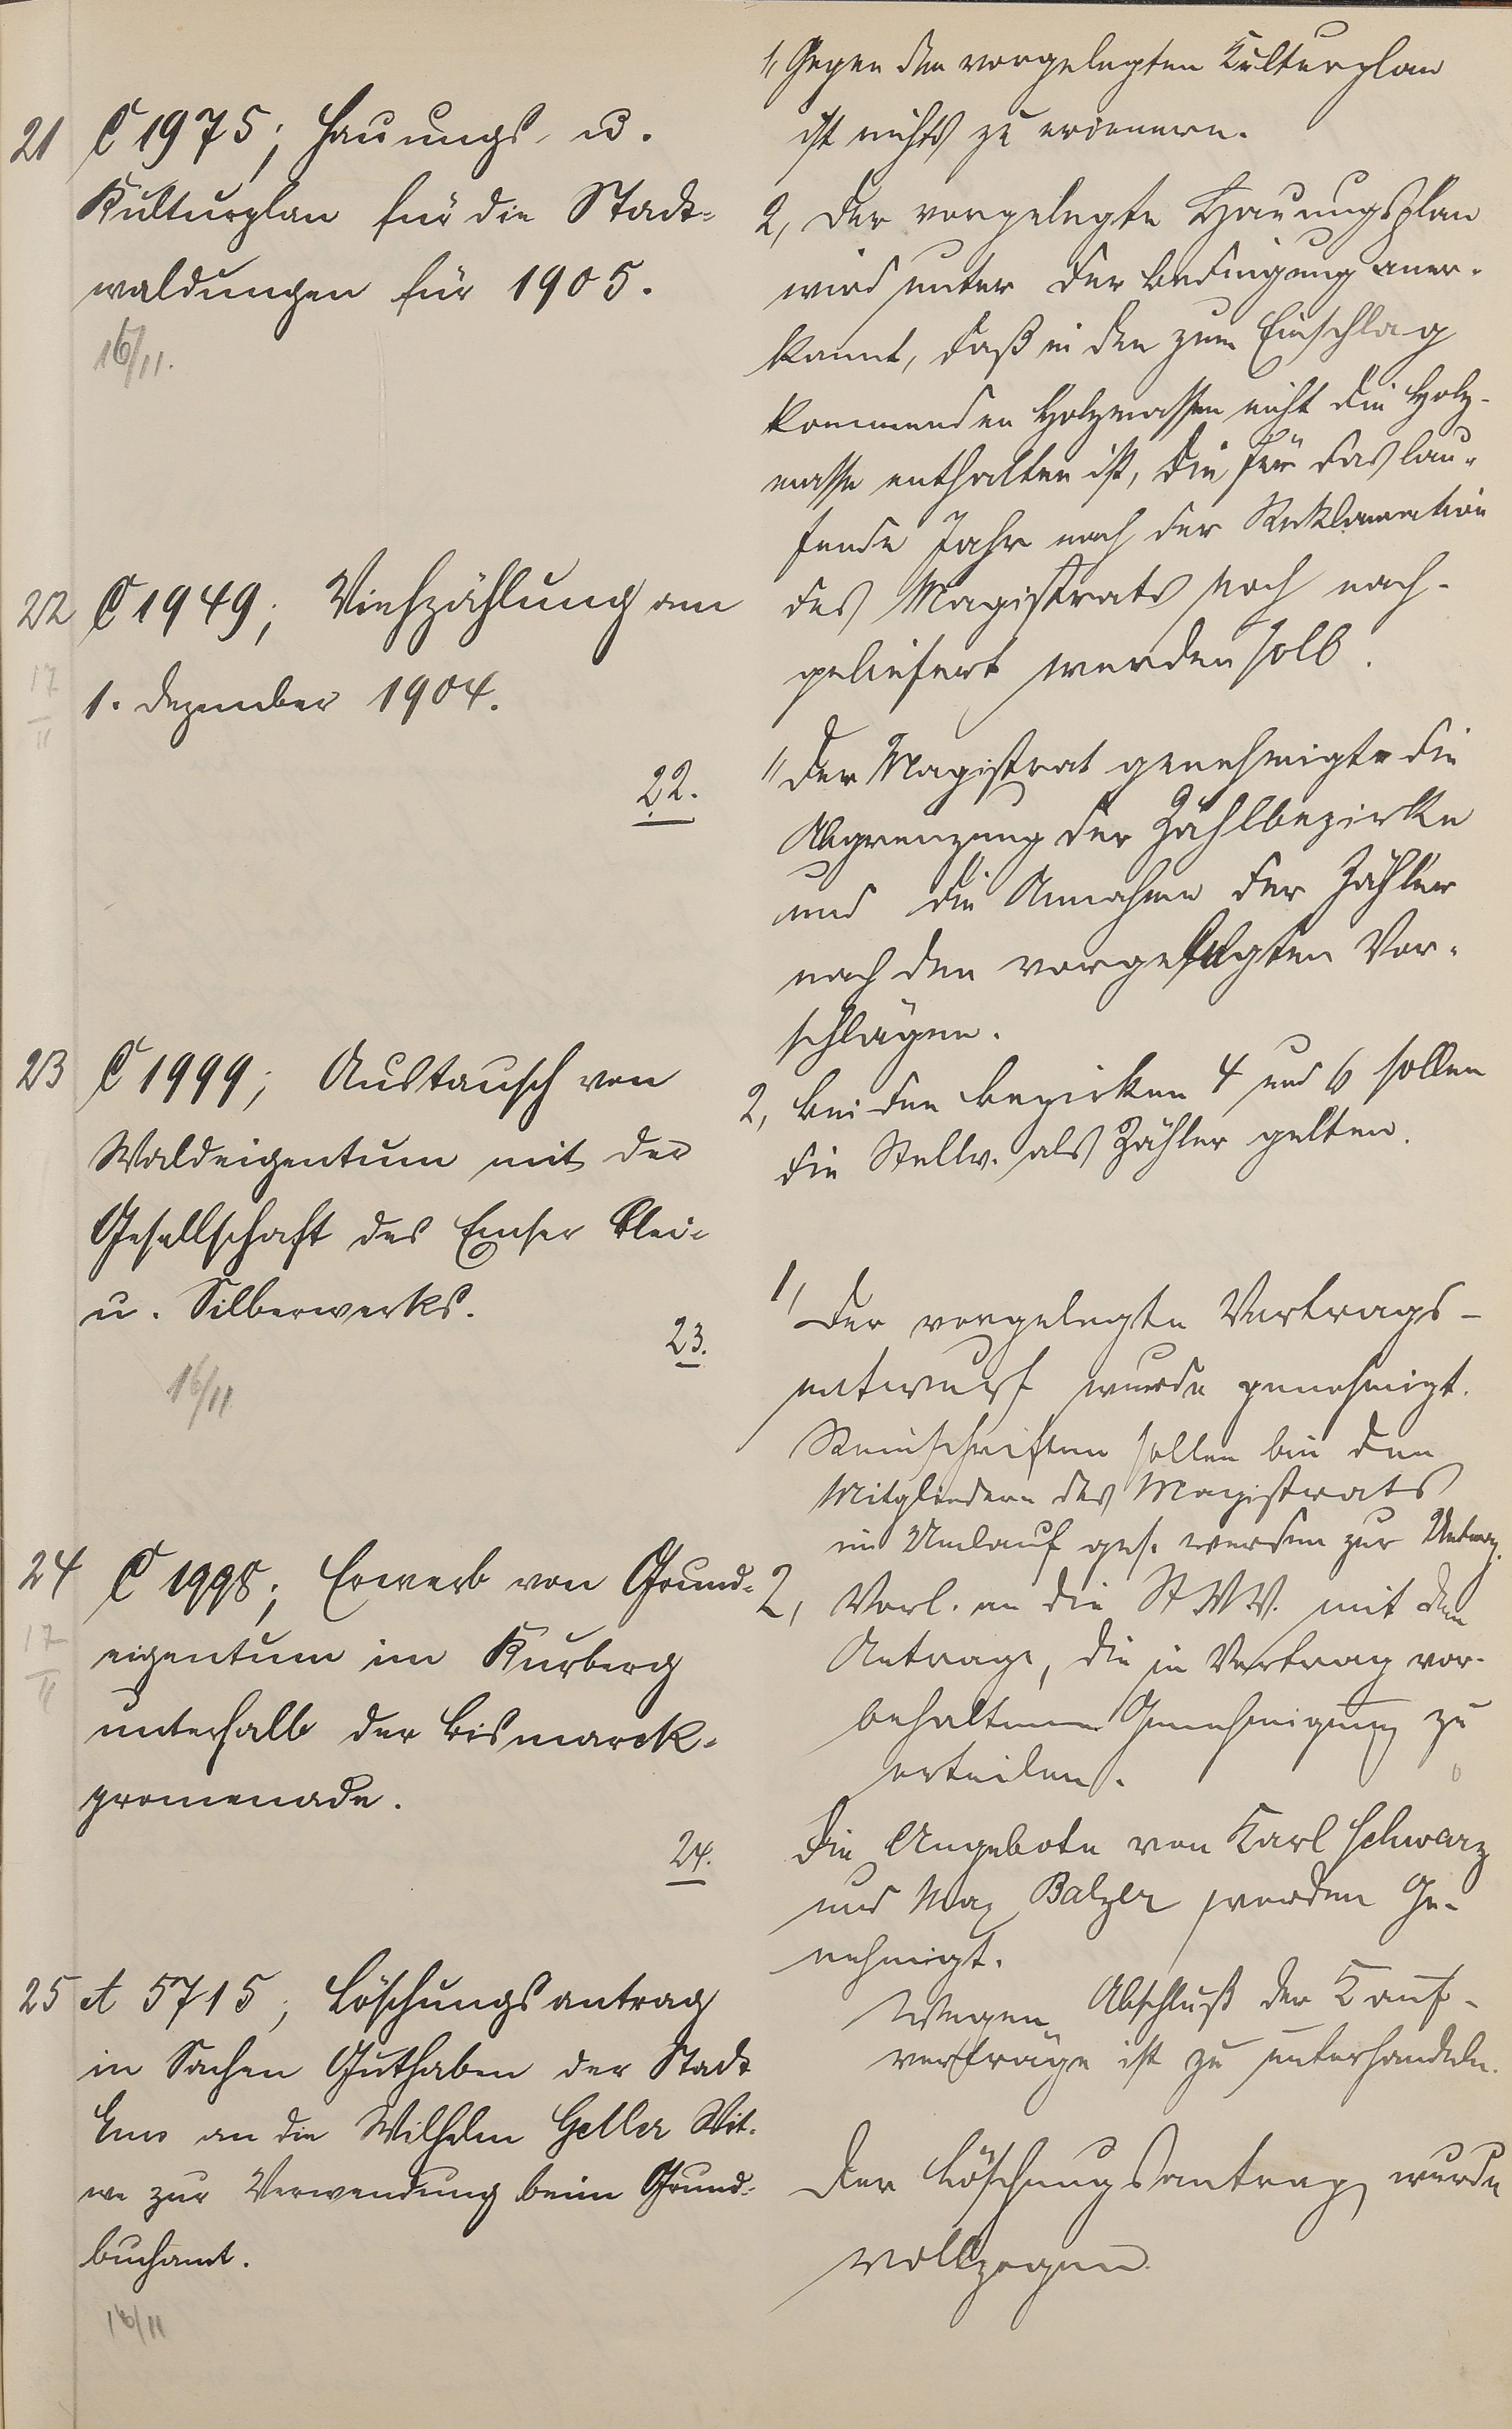 21 C 1975; Hauungs- u.
Kulturplan für die Stadt-
waldungen für 1905.
16/11.
1, Gegen den vorgelegten Kulturplan
ist nichts zu erinnern.
2, Der vorgelegte Hauungsplan
wird unter der Bedingung aner-
kannt, daß in den zum Einschlag
kommenden Holzmassen nicht die Holz-
masse enthalten ist, die für das lau-
fende Jahr nach der Reklamation
des Magistrats noch nach-
geliefert werden soll.
22 C 1949; Viehzählung am
1. Dezember 1904.
17
11
22.
1, Der Magistrat genehmigte die
Abgrenzung der Zählbezirke
und die Annahme der Zähler
nach den vorgelegten Vor-
schlägen.
2, Bei den Bezirken 4 und 6 sollen
die Stellv. als Zähler gelten.
23 C 1999; Austausch von
Waldeigentum mit der
Gesellschaft des Emser Blei-
u. Silberwerks.
16/11
23.
1, Der vorgelegte Vertrags-
entwurf wurde genehmigt.
Reinschriften sollen bei den
Mitgliedern des Magistrats
in Umlauf ges. werden zur
2, Vorl. an die St.V.V. mit dem
Antrage, die in Vertrag vor-
behaltene Genehmigung zu
erteilen.
24 C 1998; Erwerb von Grund-
eigentum im Kurberg
unterhalb der Bismarck-
promenade.
17
11
24.
Die Angebote von Karl Schwarz
und Max Balzer werden ge-
nehmigt.
Wegen Abschluß der Kauf-
verträge ist zu unterhandeln.
25 A 5715; Löschungsantrag
in Sachen Guthaben der Stadt
Ems an die Wilhelm Geller Wit-
we zur Verwendung beim Grund-
buchamt.
16/11
Der Löschungsantrag wurde
vollzogen.